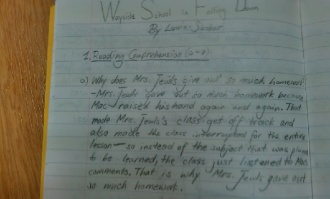 Wayside School is Falling Down
By Louis Sachar
1. Reading Comprehension
a) Why does Mrs. Jewls give out so much homework?
-Mrs. Jewls gave out so much homework because
Mac raised his hand again and again. That
made Mrs. Jewls's class get off track and
also made the class interrupted for the entire
lesson - so instead of the subject that was
to be learned, the class just listened to Mac's
comments. That is why Mrs. Jewls gave out
so much homework.